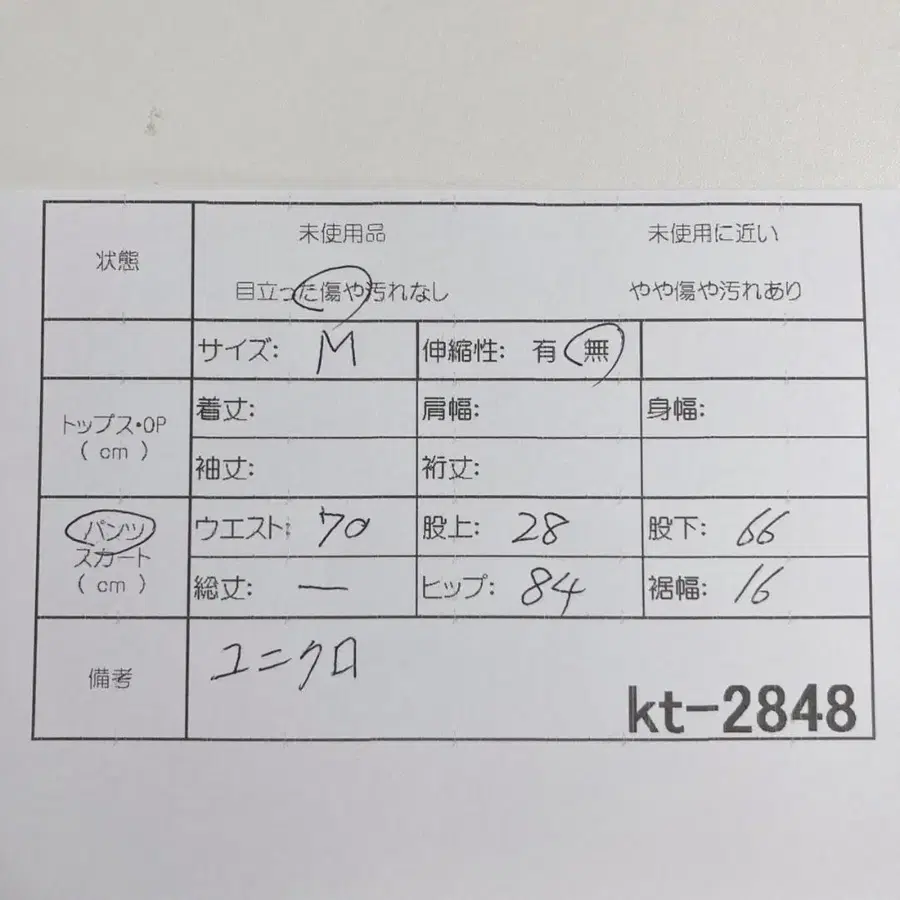 状態
未使用品 未使用に近い
目立った傷や汚れなし やや傷や汚れあり
サイズ: M 伸縮性: 有 無
トップス・OP
(cm)
着丈: 肩幅: 身幅:
袖丈: 裄丈:
パンツ
スカート
(cm)
ウエスト: 70 股上: 28 股下: 66
総丈: — ヒップ: 84 裾幅: 16
備考
ユニクロ
kt-2848